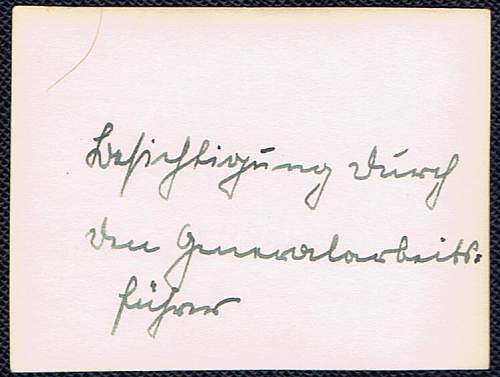 Besichtigung durch
den Generalarbeits-
führer